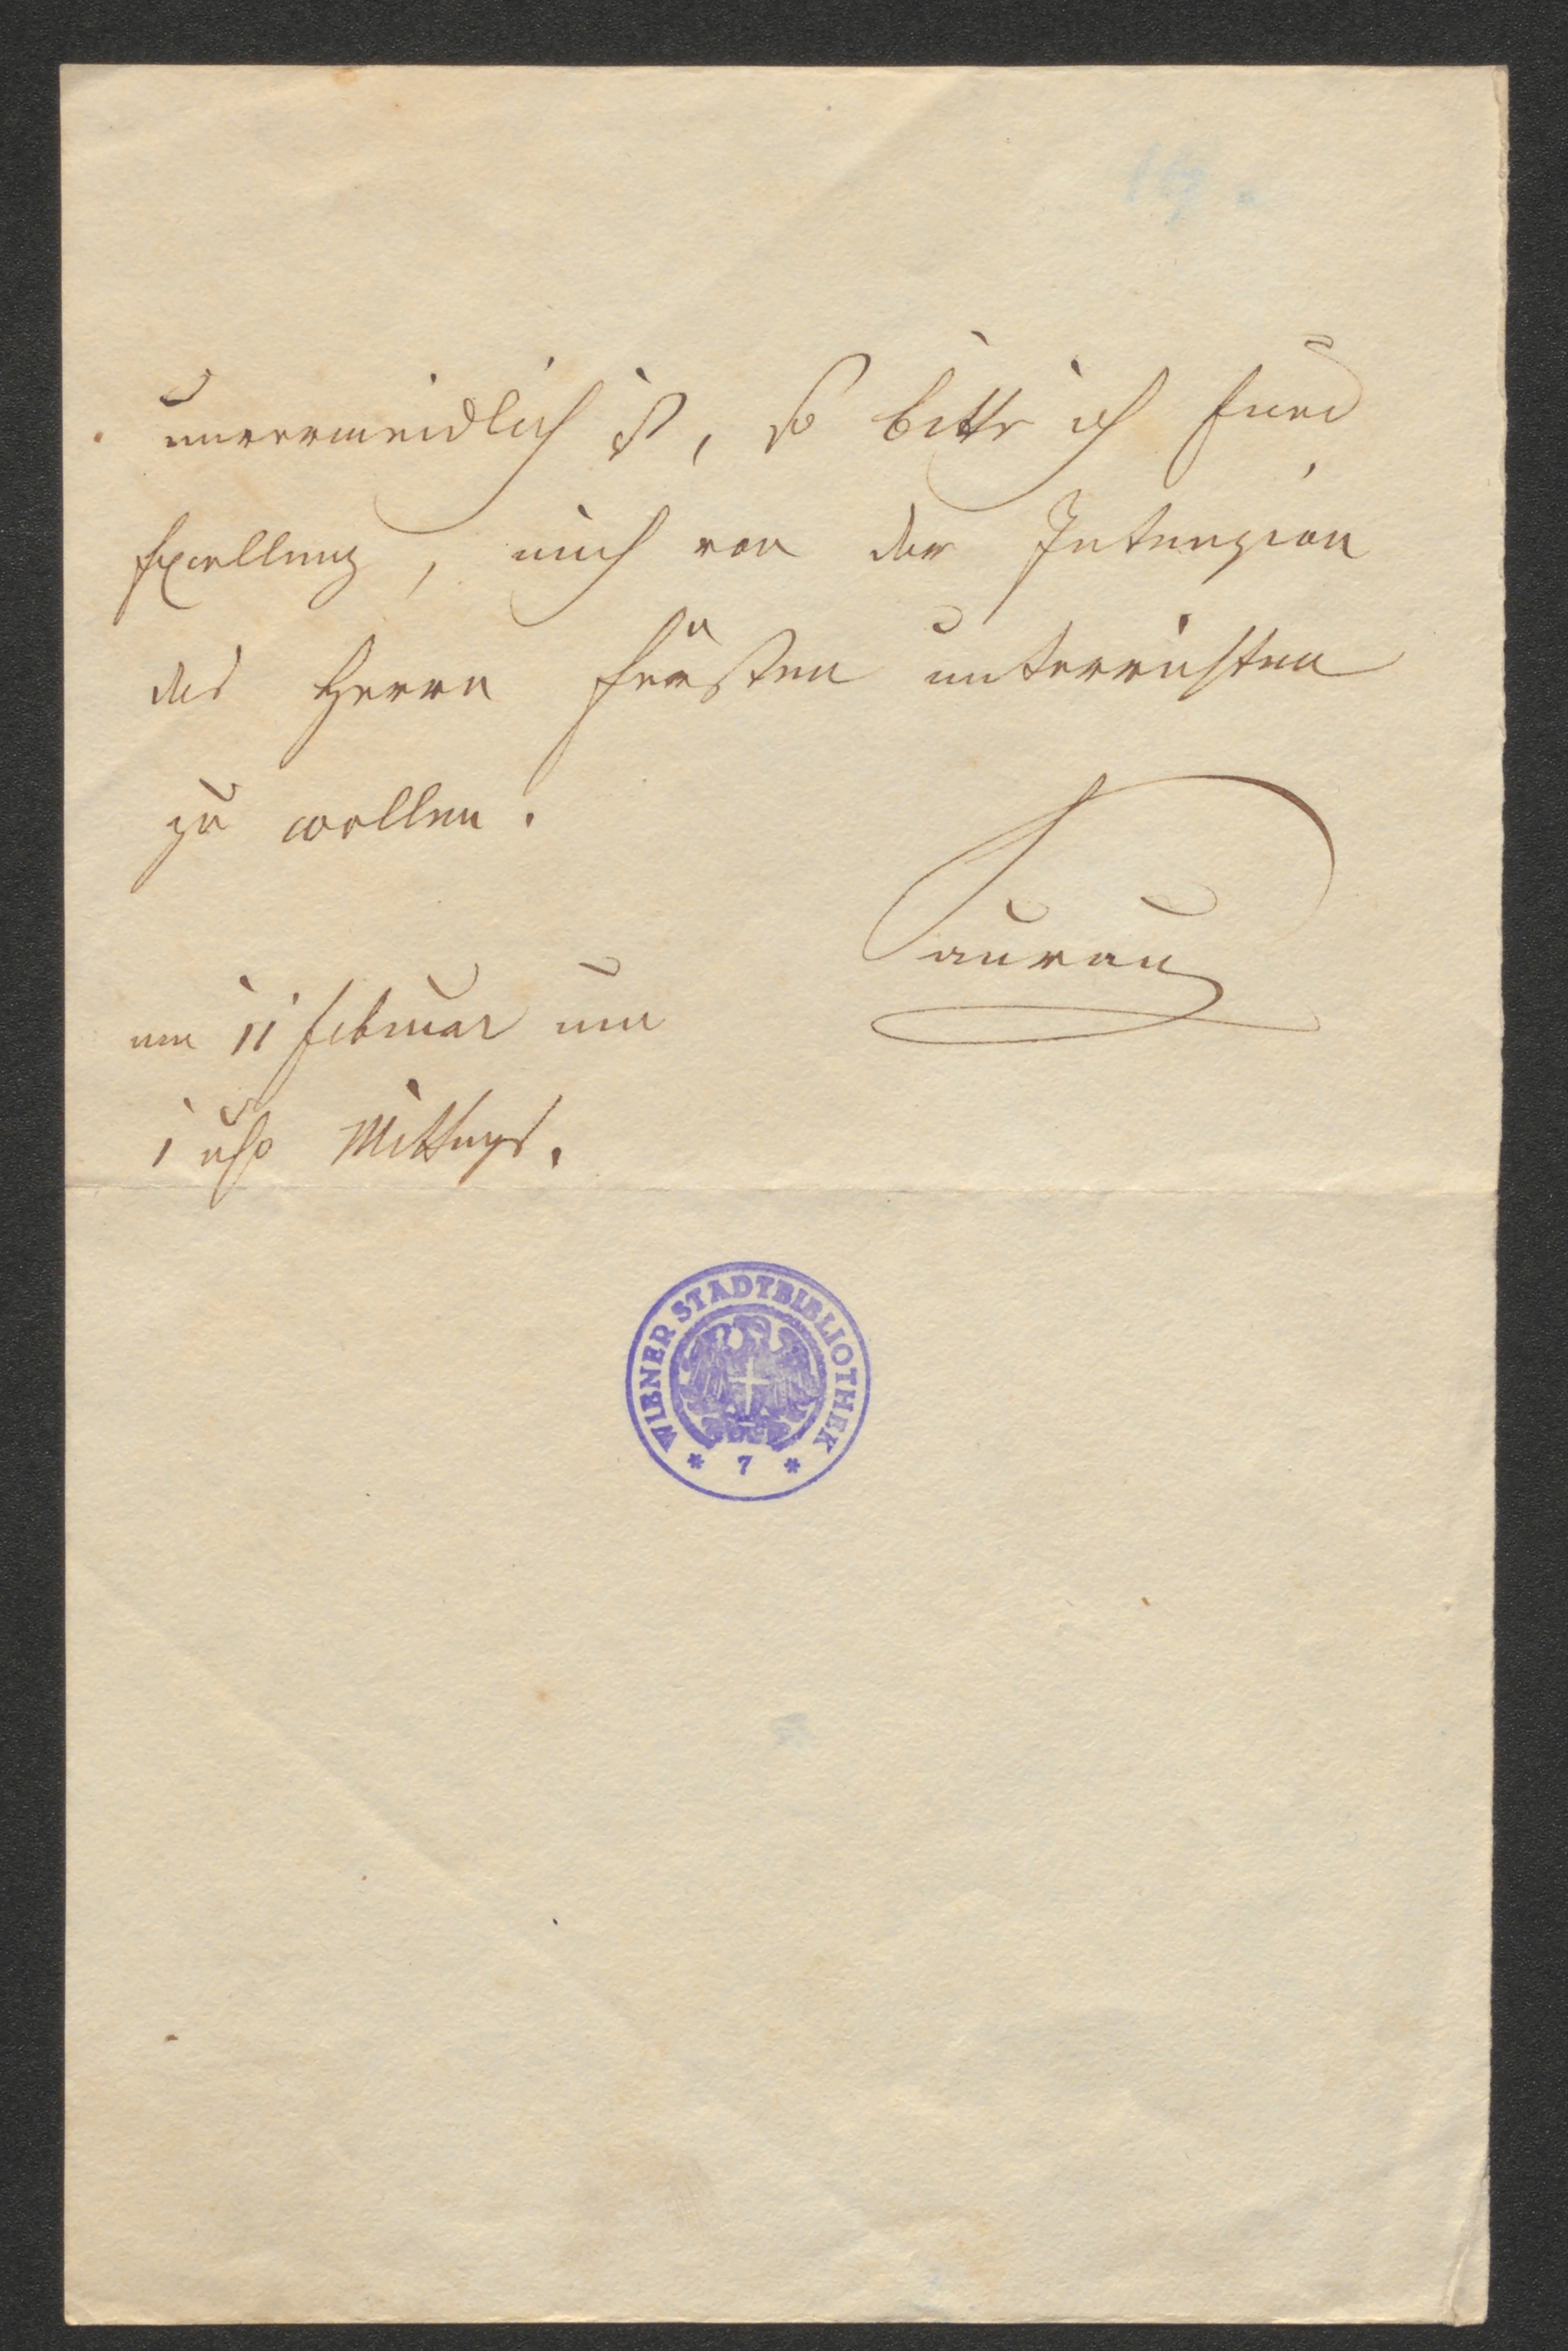 unvermeidlich ist, so bitte ich Eure
Excellenz, mich von der Intenzion
des Herrn Fürsten unterrichten
zu wollen.
Saurau
am 11 Februar um
1 uhr Mittags.
WIENER STADTBIBLIOTHEK
* 7 *